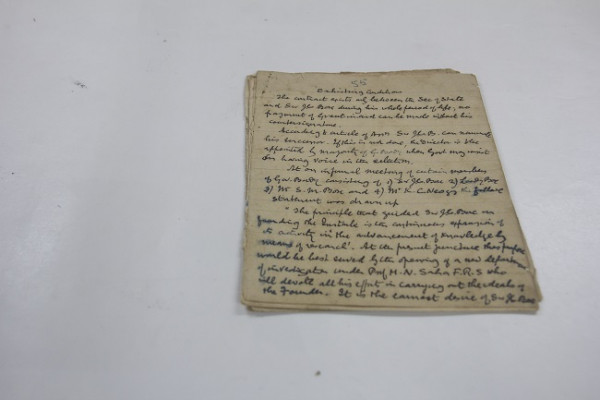 55
Existing
The contract exists only between the Sec of State
and Sir Jho Bose during his whole period of life, no
payment of Grant-in-aid can be made without his
countersignature.
According to article of Assn Sir Jho B. can nominate
his successor. If this is not done, the Director is to be
appointed by majority of G. Body when Govt may insist
on having voice in the selection.
At an informal meeting of certain members
of Gov. Body consisting of 1) Sir Jho Bose 2) Lady Bose
3) Mr S. M. Bose and 4) Mr K. C. Neogy the following
Statement was drawn up
"The principle that guided Sir Jho Bose in
founding the Institute is the continuous expansion of
its activity in the advancement of knowledge by
means of research'. At the present juncture this purpose
would be best served by the opening of a new department
of investigation under Prof M. N. Saha F.R.S who
will devote all his efforts in carrying out the ideals of
the Founder. It is the earnest desire of Sir Jho Bose